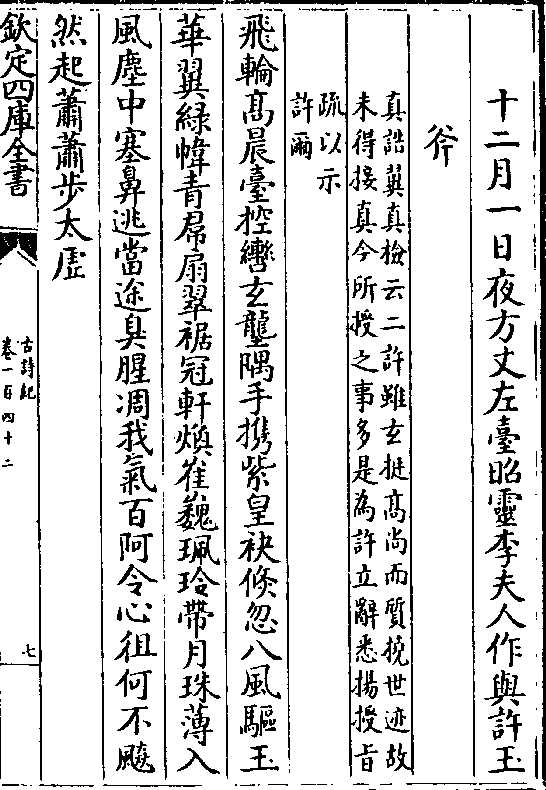 十二月一日夜方丈左臺昭靈李夫人作與許玉
斧
真誥翼真檢云二許雖玄挺高尚而質撓世迹故
未得接真今所授之事多是為許立辭悉揚授旨
疏以示
許爾
飛輪高晨臺控轡玄壟隅手攜紫皇袂倏忽八風驅玉
華翼綠幃青帬扇翠裾冠軒煥崔巍珮玲帶月珠薄入
風塵中塞鼻逃當途臭腥凋我氣百阿令心徂何不飈
然起蕭蕭步太虛
欽定四庫全書
古詩紀
卷一百四十二
七